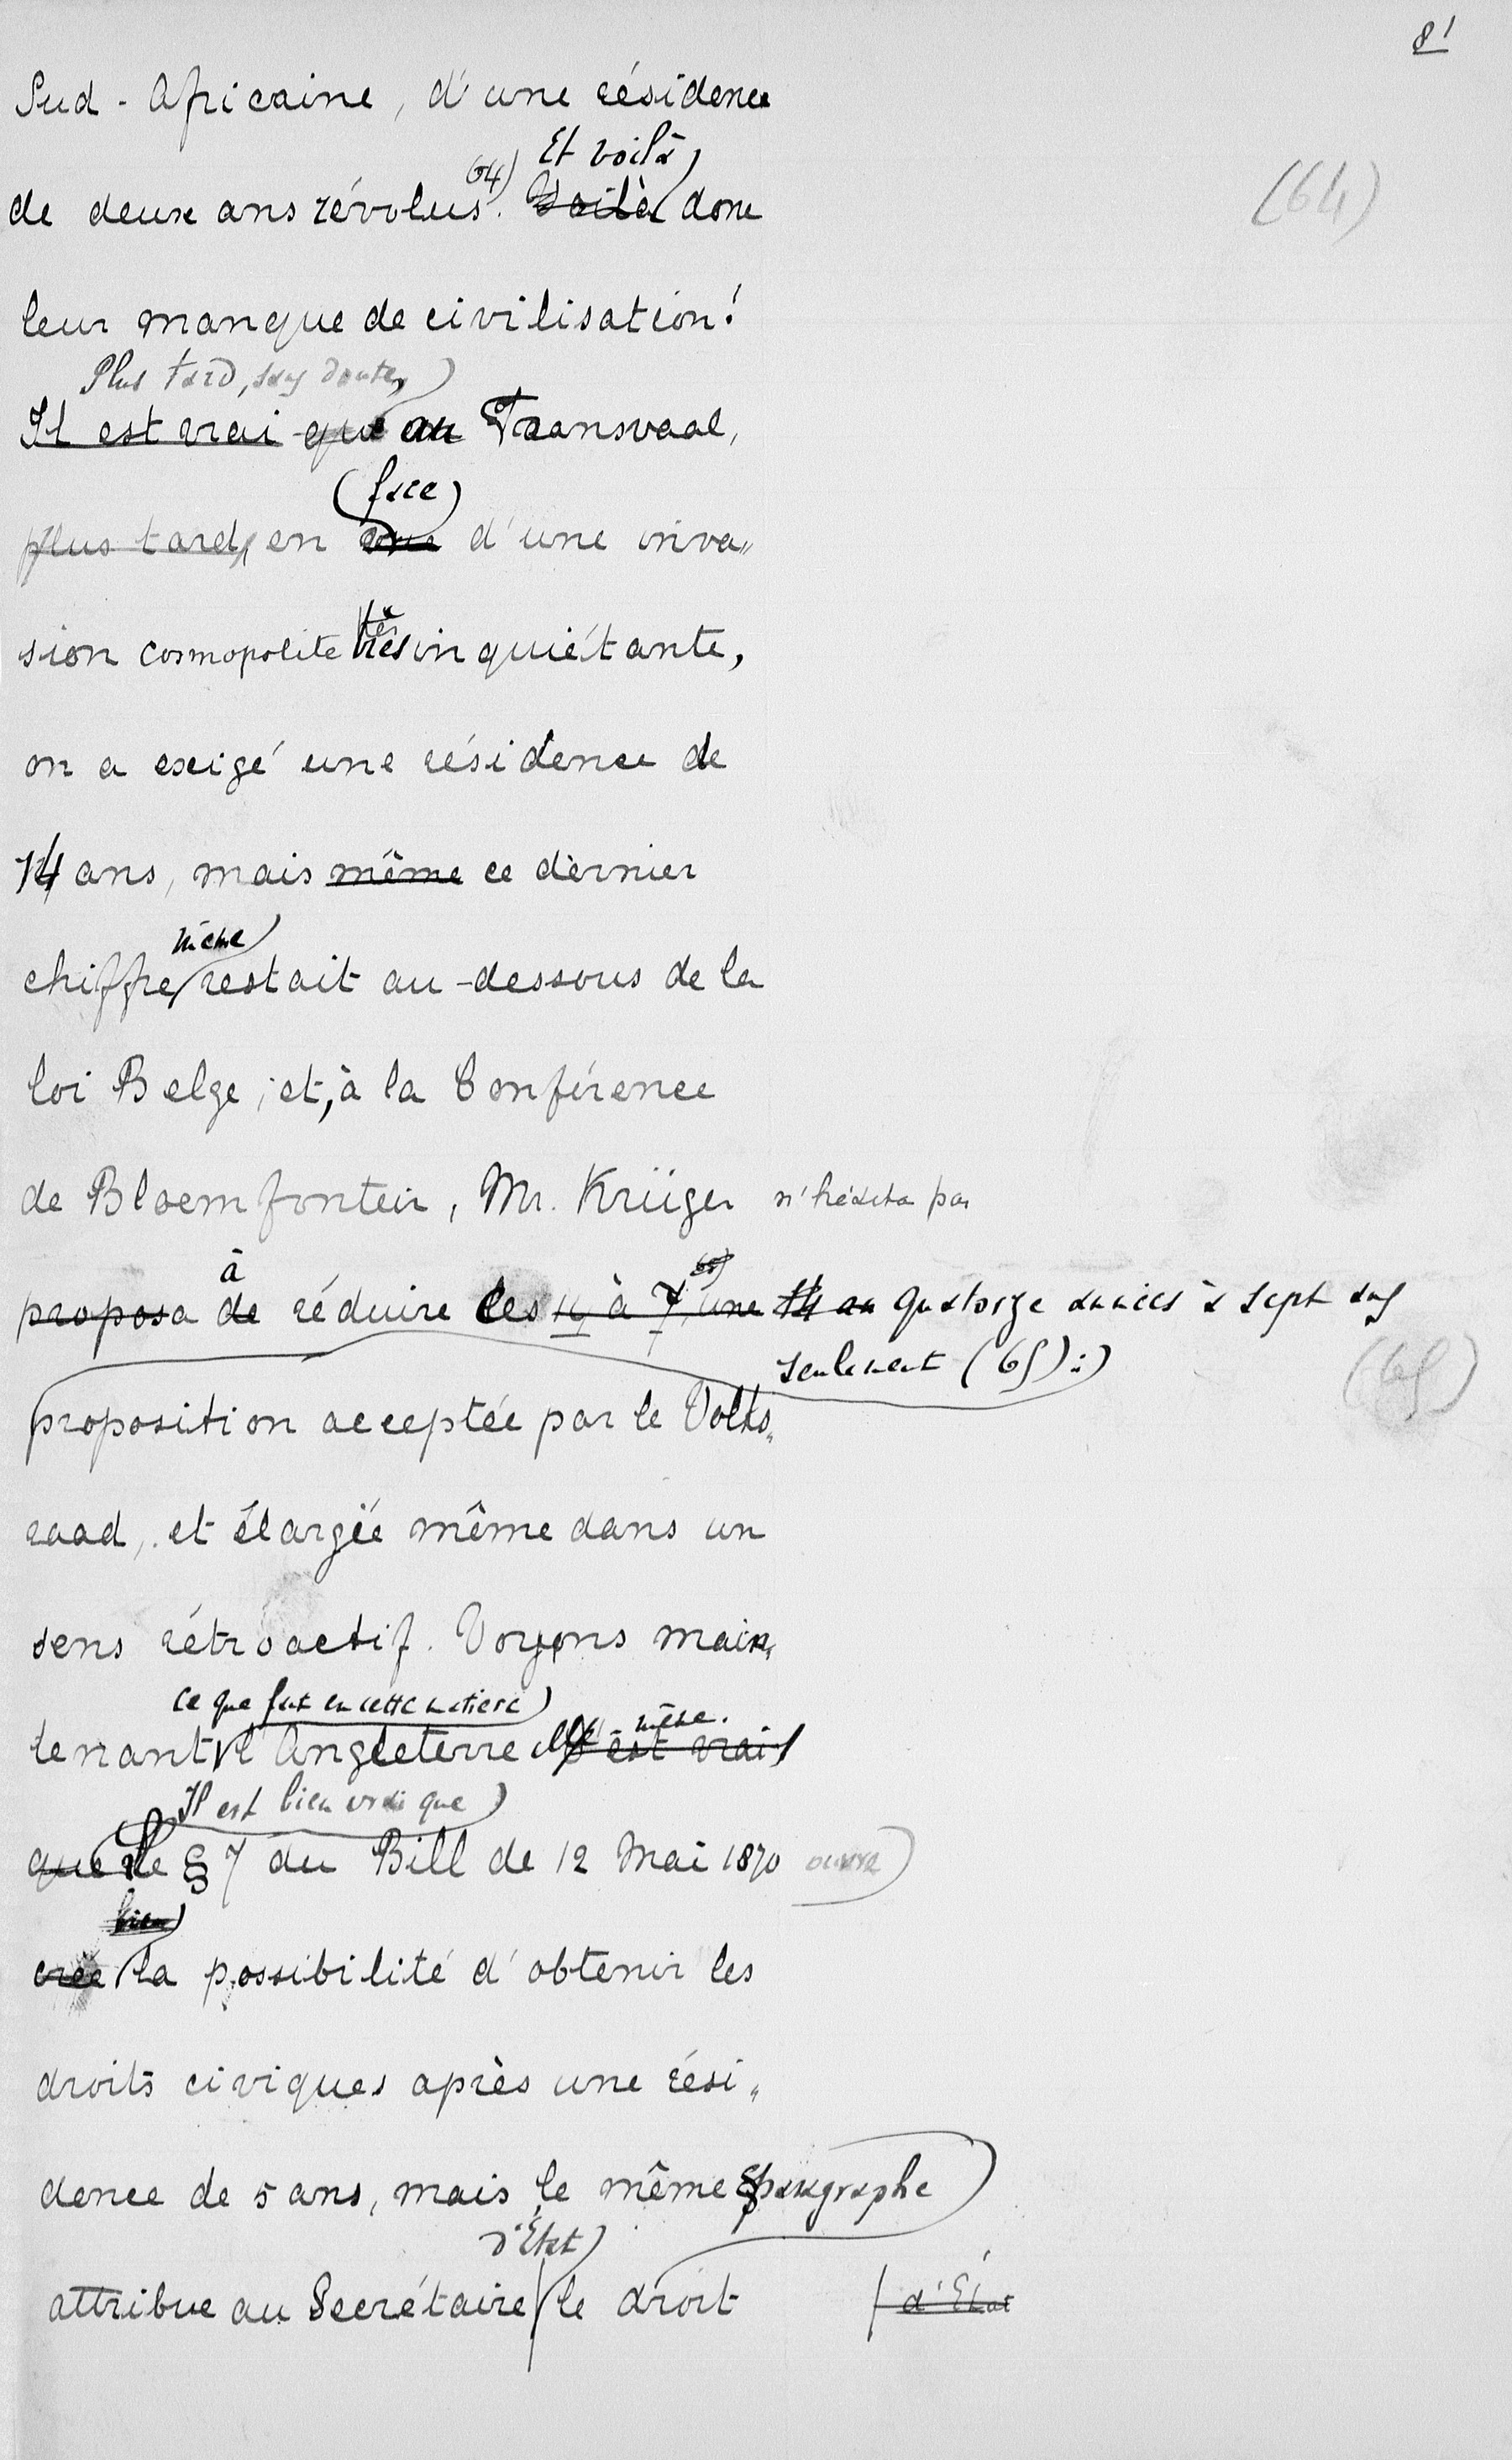 81
Sud-Africaine, d'une résidence
Et voilà
de deux ans révolus 64). Voilà donc
(64)
leur manque de civilisation!
Plus tard, sans doute,
Il est vrai que au Transvaal,
(face)
plus tard, en vue d'une inva„
sion cosmopolite très inquiétante,
on a exigé une résidence de
14 ans, mais même ce dernier
même
chiffre restait au-dessous de la
loi Belge; et, à la Conférence
de Bloemfontein, Mr. Krüger n'hésita pas
à
proposa de réduire les 14 à 7, une quatorze années à sept ans
seulement (65):
(65)
proposition acceptée par le Volks„
raad, et élargie même dans un
sens rétroactif. Voyons main„
ce que fut en cette matière
tenant l'Angleterre elle même. est vrai
Il est bien vrai que
que le § 7 du Bill de 12 Mai 1870 ouvre
bien
crée la possibilité d'obtenir les
droits civiques après une rési„
dence de 5 ans, mais le même § paragraphe
d'État
attribue au Secrétaire le droit
d'État